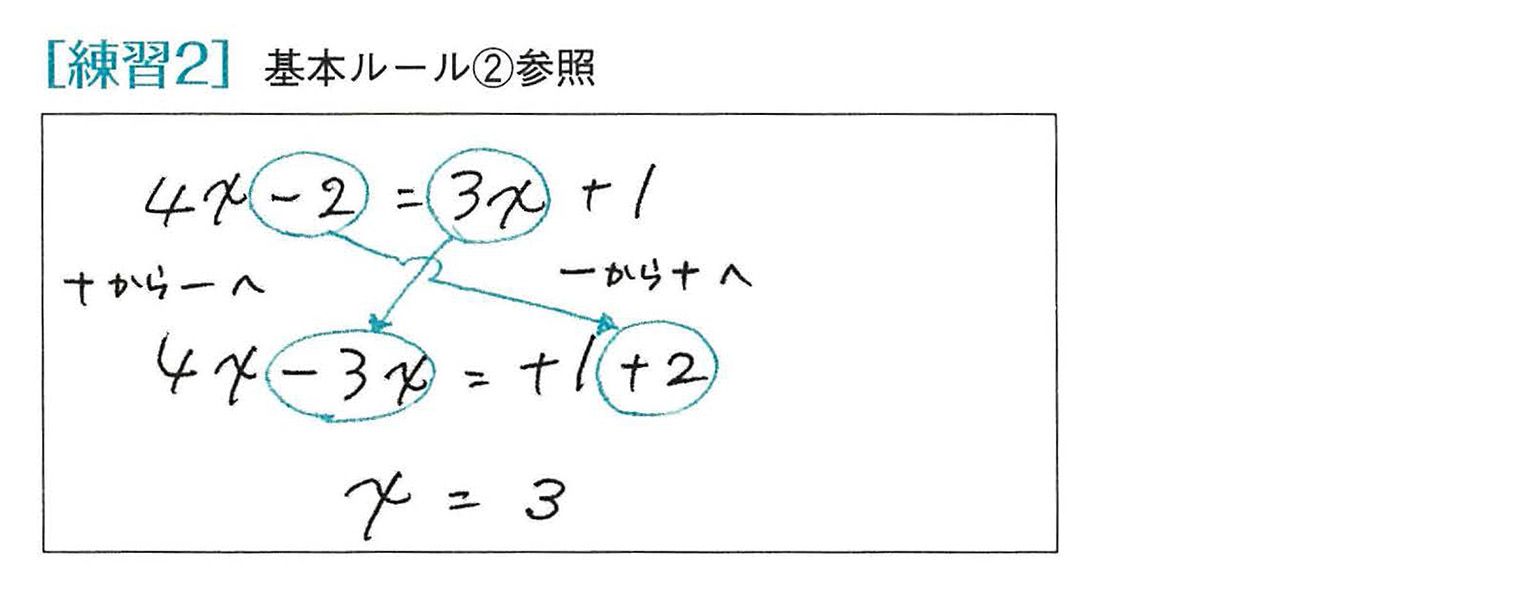 [練習2] 基本ルール②参照
4x - 2 = 3x + 1
+から-へ -から+へ
4x - 3x = +1 + 2
x = 3